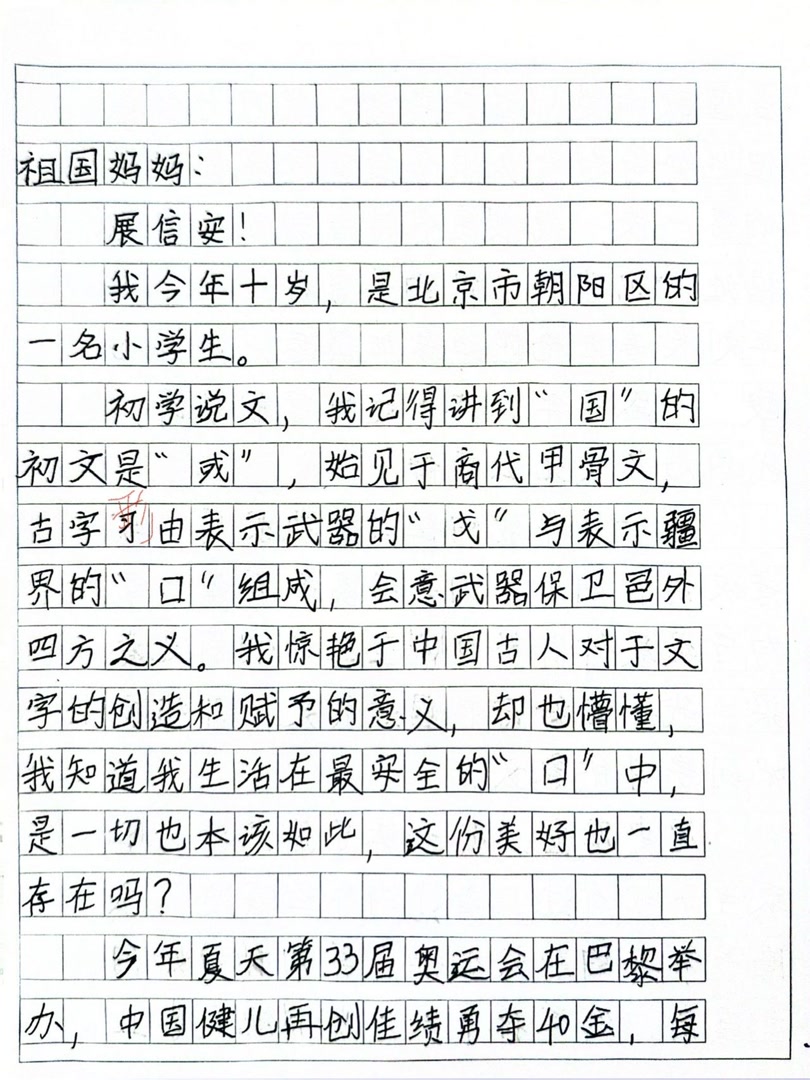 祖国妈妈：
展信安！
我今年十岁，是北京市朝阳区的
一名小学生。
初学说文，我记得讲到“国”的
初文是“或”，始见于商代甲骨文，
古字形由表示武器的“戈”与表示疆
界的“口”组成，会意武器保卫邑外
四方之义。我惊艳于中国古人对于文
字的创造和赋予的意义，却也懵懂，
我知道我生活在最安全的“口”中，
是一切也本该如此，这份美好也一直
存在吗？
今年夏天第33届奥运会在巴黎举
办，中国健儿再创佳绩勇夺40金，每